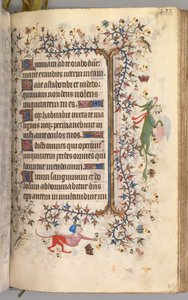 Quoniam ad te orabo dn̄e:
mane exaudies uocem meam
Mane astabo tibi et uidebo:
quoniam non deus uolens
iniquitatem tu es.
Neq habitabit iuxta te ma
lignus neq permanebunt in
iusti ante oculos tuos.
Odisti omnes qui operant
iniquitatem perdes omnes qui
locuntur mendacium
Virum sanguinum et do
losum abhominabitur dn̄s
ego autem in multitudine